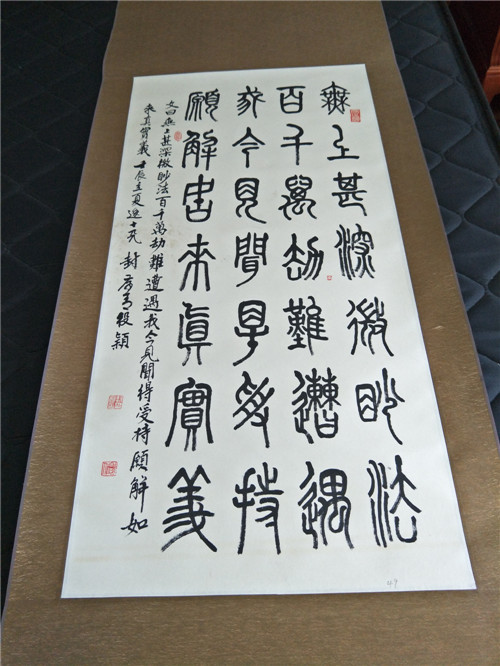 無上甚深微眇法
百千萬劫難遭遇
我今見聞得受持
願解如來眞實義
文曰無上甚深微眇法百千萬劫難遭遇我今見聞得受持願解如
來真實義 壬辰立夏
49